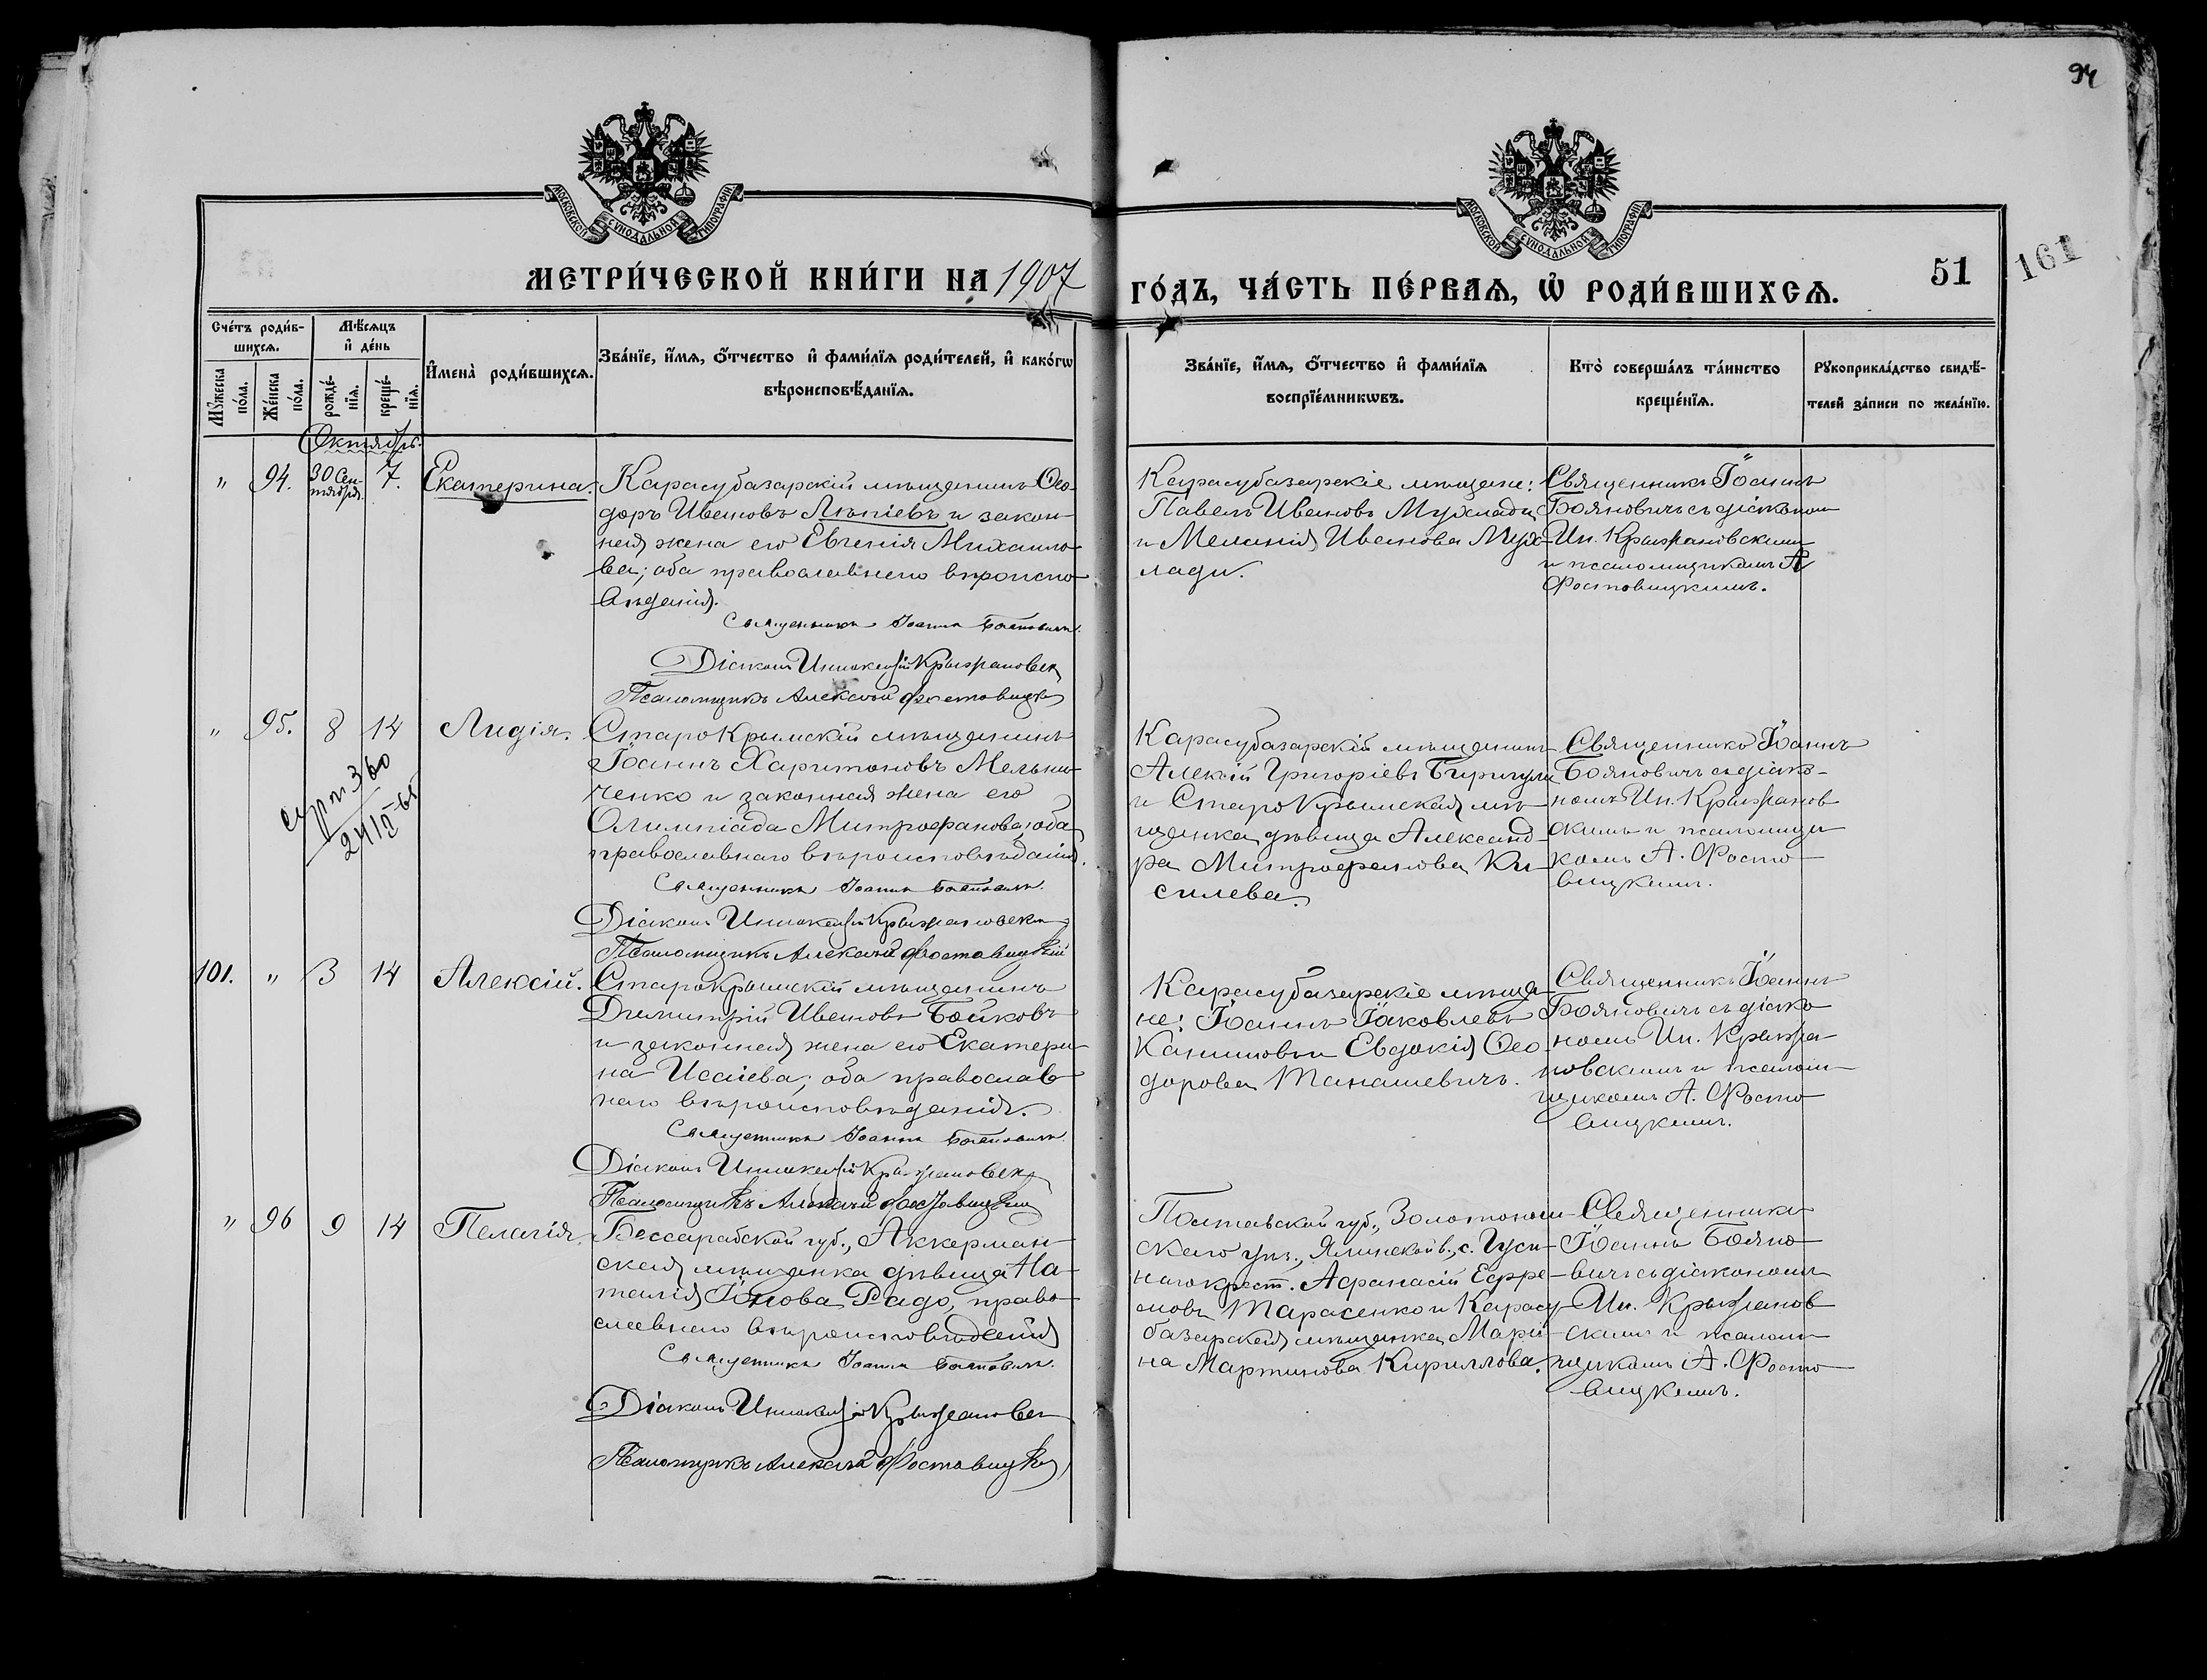 94
МОСКОВСКОЙ СѴНОДАЛЬНОЙ ТИПОГРАФІИ
МОСКОВСКОЙ СѴНОДАЛЬНОЙ ТИПОГРАФІИ
МЕТРИ́ЧЕСКОЙ КНИ́ГИ НА 1907
ГО́ДЪ, ЧА́СТЬ ПЕ́РВАѦ, Ѡ҆ РОДИ́ВШИХСѦ.
51
161
Сче́тъ роди́в-
шихсѧ.
Мѣ́сѧцъ
и҆ де́нь
Мꙋ́жеска по́ла.
Же́нска по́ла.
рожде́-
нїѧ.
креще́-
нїѧ.
И҆мена̀ роди́вшихсѧ.
Зва́нїе, и҆́мѧ, о҆́тчество и҆ фами́лїѧ роди́телей, и҆ како́гѡ
вѣроисповѣ́данїѧ.
Зва́нїе, и҆́мѧ, о҆́тчество и҆ фами́лїѧ
воспрїе́мникѡвъ.
Кто̀ соверша́лъ та́инство
креще́нїѧ.
Рꙋкоприкла́дство свидѣ́-
телей за́писи по жела́нїю.
Октябрь.
" 94. 30 Сен-
тября. 7. Екатерина.
Карасубазарскій мѣщанинъ Ѳео-
доръ Ивановъ Лѣпіевъ и закон-
ная жена его Евгенія Михаило-
ва; оба православнаго вѣроиспо-
вѣданія.
Священникъ Іоаннъ Бояновичъ.
Діаконъ Иннокентій Крыжановск
Псаломщикъ Алексѣй Фостовицкі
Карасубазарскіе мѣщане:
Павелъ Ивановъ Мухлади
и Меланія Иванова Мух-
лади.
Священникъ Іоаннъ
Бояновичъ съ діакономъ
Ин. Крыжановскимъ
и псаломщикомъ А
Фостовицкимъ.
" 95. 8 14 Лидія.
360
Старокрымскій мѣщанинъ
Іоаннъ Харитоновъ Мельни-
ченко и законная жена его
Олимпіада Митрофанова; оба
православнаго вѣроисповѣданія.
Священникъ Іоаннъ Бояновичъ.
Діаконъ Иннокентій Крыжановски
Псаломщикъ Алексѣй Фостовицкій
Карасубазарскій мѣщанинъ
Алексій Григоріевъ
и Старокрымская мѣ-
щанка дѣвица Александ-
ра Митрофанова Ки-
силева.
Священникъ Іоаннъ
Бояновичъ съ діако-
номъ Ин. Крыжанов-
скимъ и псаломщи-
комъ А. Фосто-
вицкимъ.
101. " 3 14 Алексій.
Старокрымскій мѣщанинъ
Димитрій Ивановъ Бойковъ
и законная жена его Екатери-
на Исаіева; оба православ-
наго вѣроисповѣданія.
Священникъ Іоаннъ Бояновичъ.
Діаконъ Иннокентій Крыжановск
Псаломщикъ Алексѣй Фостовицкій
Карасубазарскіе мѣща-
не: Іоаннъ Іаковлевъ
Евдокія Ѳео-
дорова Танашевичъ.
Священникъ Іоаннъ
Бояновичъ съ діако-
номъ Ин. Крыжа-
новскимъ и псалом-
щикомъ А. Фосто-
вицкимъ.
" 96 9 14 Пелагія.
Бессарабской губ., Аккерман-
ская мѣщанка дѣвица На-
талія Іонова Радо, право-
славнаго вѣроисповѣданія
Священникъ Іоаннъ Бояновичъ.
Діаконъ Иннокентій Крыжановск
Псаломщикъ Алексѣй Фостовицкі
Полтавской губ., Золотонош-
скаго уѣз., с. Гуси-
наго крест. Афанасій Ефре-
мовъ Тарасенко и Карасу-
базарская мѣщанка Марі-
на Мартинова Кириллова.
Священникъ
Іоаннъ Бояно-
вичъ съ діакономъ
Ин. Крыжанов-
скимъ и псалом-
щикомъ А. Фосто-
вицкимъ.